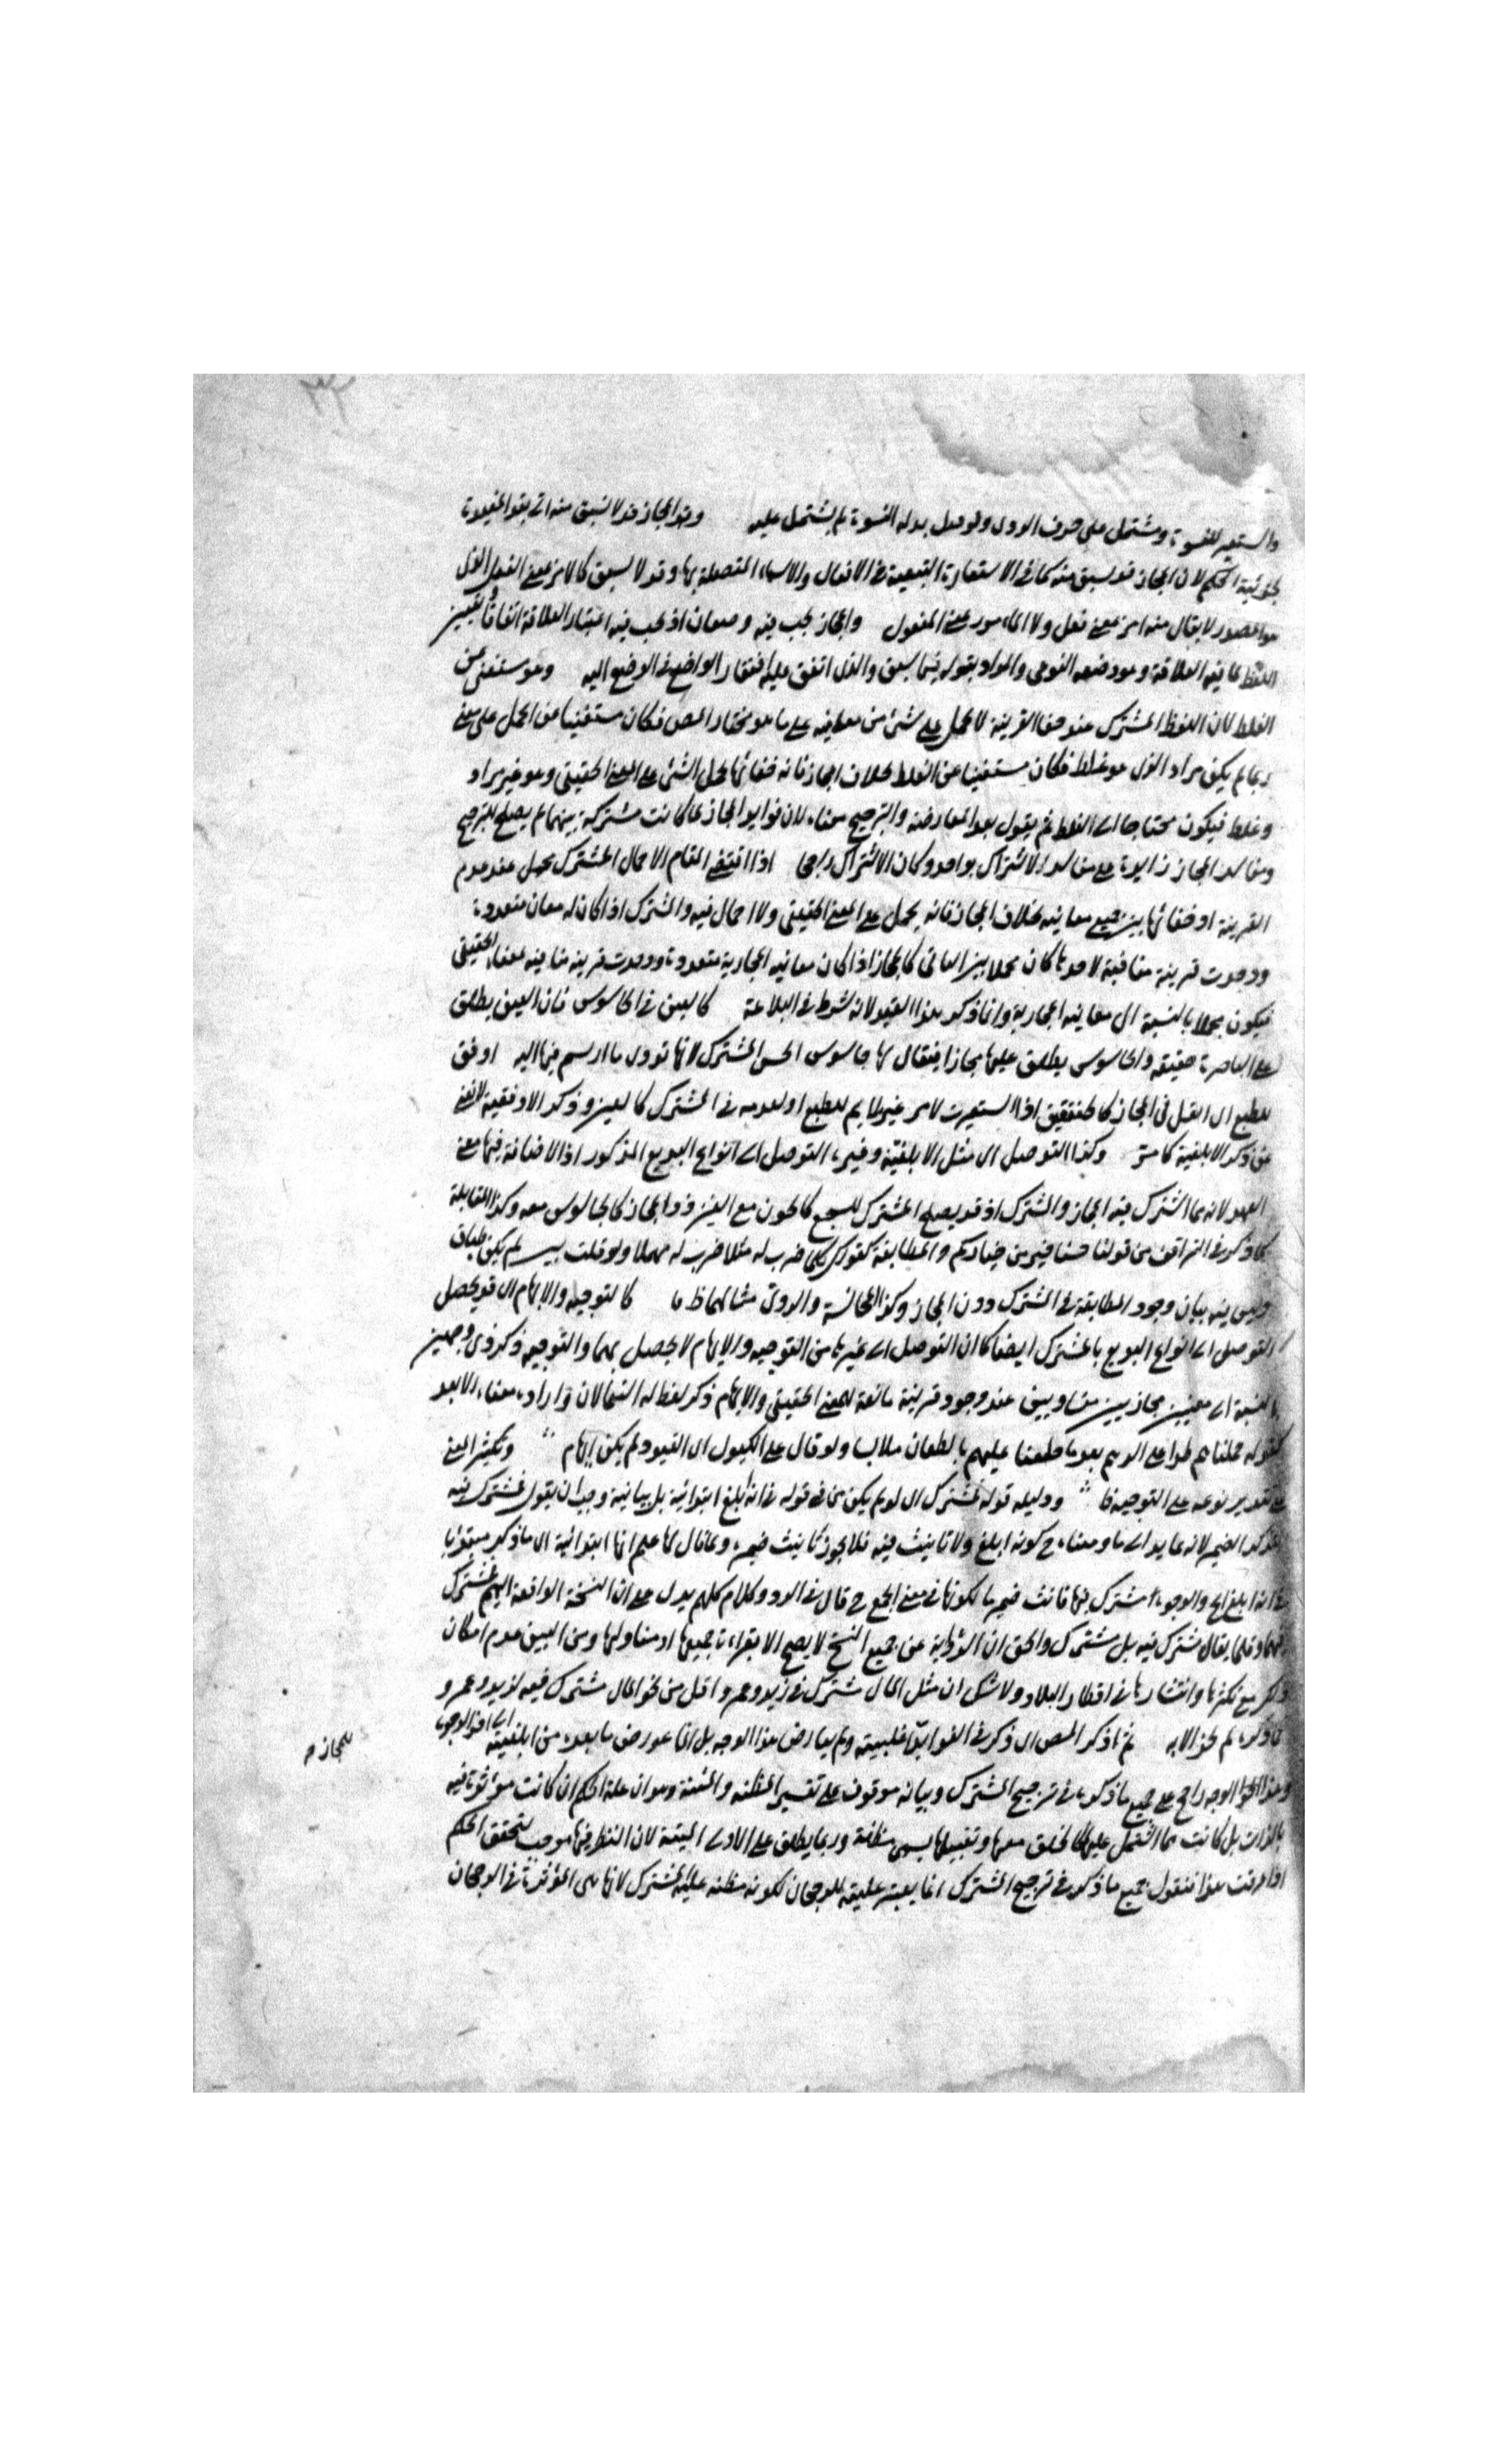 واستعير للقسوة ومشتمل على حرف الروى ولو قيل بدله القسوة لم يشتمل عليه وقد المجاز قد لا يشتق منه اتى بقد المفيدة
لجزئية الحكم لان المجاز قد يشتق منه كما فى الاستعارة التبعية فى الافعال والاسماء المتصلة بها وقد لا يشتق كالامر بمعنى الفعل الذى
هو مصدر لا يقال منه امر بمعنى فعل ولا المأمور بمعنى المفعول والمجاز يجب فيه وضعان اذ يجب فيه اعتبار العلاقة اتفاقا وتعيين
اللفظ لما فيه العلاقة وهو وضعه النوعى والمراد بقوله فيما سبق والذى اتفق عليه افتقار الواضع فى الوضع اليه وهو مستغنى عن
الغلط لان اللفظ المشترك عند خفاء القرينة لا يحمل على شئ من معانيه على ما هو مختار المص فكان مستغنيا عن الحمل على معنى
ربما لم يكن مراد الذى هو غلط فكان مستغنيا عن الغلط بخلاف المجاز فانه خفائها يحمل الشئ على المعنى الحقيقى وهو غير مراد
وغلط فيكون محتاجا الى الغلط ثم يقول بعد المعارضة والترجيح معنا، لان فوايد المجاز لما كانت مشتركة بينهما لم يصلح للترجيح
ومفاسد المجاز زايدة على مفاسد الاشتراك بواحد وكان الاشتراك راجحا اذا اقتضى المقام الاجمال المشترك يجمل عند عدم
القرينة او خفائها بين جميع معانيه بخلاف المجاز فانه يحمل على المعنى الحقيقى ولا اجمال فيه والمشترك اذا كان له معان متعددة
ووجدت قرينة منافية لاحدها كان مجملا بين الباقى كالمجاز اذا كان معانيه المجازية متعددة ووجدت قرينة منافية معناه الحقيقى
فيكون مجملا بالنسبة الى معانيه المجازية وانما ذكر هذا القيد لانه شرط فى البلاغة كالعين فى الجاسوس فان العين يطلق
على الباصرة حقيقة والجاسوس يطلق عليها مجازا فيقال لها جاسوس الحس المشترك لانها تؤدى ما ارتسم فيها اليه اوفق
للطبع اى الثقل فى المجاز كالخنفقيق اذا استعيرت لامر غير ملايم للطبع او لعدمه فى المشترك كالعين وذكر الاوفقية لا يغنى
عن ذكر الابلغية كما مر وكذا التوصل الى مثل الابلغية وغيره التوصل الى انواع البديع المذكور اذ الاضافة فيها معنى
العهد لانه مما اشترك فيه المجاز والمشترك اذ قد يصلح المشترك للسجع كالجون مع العين دون المجاز كالجاسوس معه وكذا المقابلة
كما ذكر فى الترادف من قولنا حسنا خير من خياركم والمطابقة كقولك كلما ضرب له مثلا ضرب له مهملا ولو قلت بيسير لم يكن طباق
وليس فيه بيان وجود المطابقة فى المشترك دون المجاز وكذا المجانسة والروى مثالهما ظاهر كالتوجيه والايهام اى قد يحصل
التوصل الى انواع البديع بالمشترك ايضا كما ان التوصل الى غيرها من التوجيه والايهام لا يحصل بهما والتوجيه ذكر ذى وجهين
بالنسبة الى معنيين مجازيين متساويين عند وجود قرينة مانعة للمعنى الحقيقى والايهام ذكر لفظ له استعمالان وارادة معناه الابعد
كقوله حملناهم طرا على الدهم بعد ما خلعنا عليهم بالطعان ملابسا ولو قال على الكبول اى القيود لم يكن ايهام وتكثير المعنى
على تقدير نوعه على التوجيه ودليله قوله فمشترك اى لو لم يكن من فى قوله فى انه ابلغ ابتدائية بل بيانية وجب ان يقول فمشترك فيه
بتذكير الضمير لانه عايد الى ما ومعناه ح كونه ابلغ ولا تانيث فيه فلا يجوز تانيث ضميره ولما قال لها علم انها ابتدائية اى ما ذكر مبتديا
من انه ابلغ الى والوجوه المشترك فيها فانث ضمير ما لكونها فى معنى الجمع ح قال فى الرد وكلام كلهم يدل على ان النسخة الواقعة اليهم فمشترك
فيهما وقلما يقال مشترك فيه بل مشترك والحق ان الرواية عن جميع النسخ لا يصح الا بقراءة جميعها او مناولتها ومن البين عدم امكان
ذلك مع تكثرها وانتشارها فى اقطار البلاد ولا شك ان مثل المال مشترك فى زيد وعمرو اقل من نحو المال مشترك فيه لزيد وعمرو
ثم ما ذكر المص اى ذكر فى الفوايد اغلبيته ولم يعارض هذا الوجه بل انما عورض ما بعده من ابلغيته الى اخر الوجوه
للمجاز م
وهذا الوجه راجح على جميع ما ذكره فى ترجيح المشترك وبيانه موقوف على تفسير المظنة والمئنة وهو ان علة الحكم ان كانت مؤثرة فيه
بالذات بل كانت مما اشتمل عليها يسمى مظنة وربما يطلق على الادلة المبينة لان النظر فيها موجب لتحقق الحكم
اذا عرفت هذا فنقول جميع ما ذكره فى ترجيح المشترك انما يعتبر عليته للرجحان لكونه مظنة غلبة المشترك لانها هى المؤثرة فى الرجحان